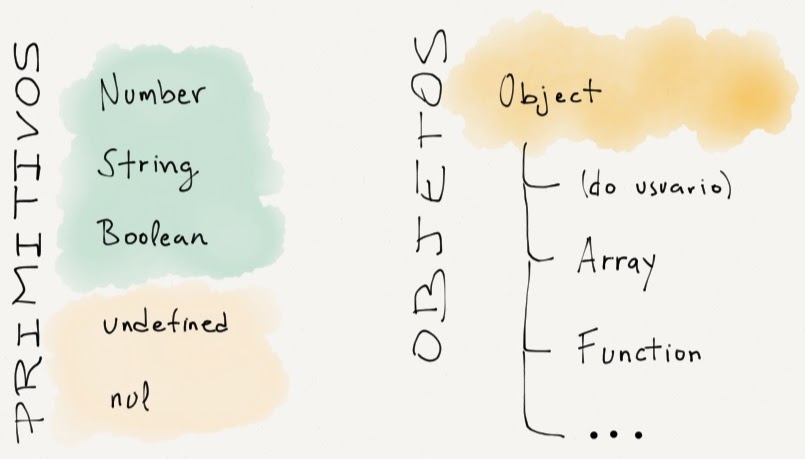 PRIMITIVOS
Number
String
Boolean
undefined
nul
OBJETOS
Object
(do usuario)
Array
Function
...